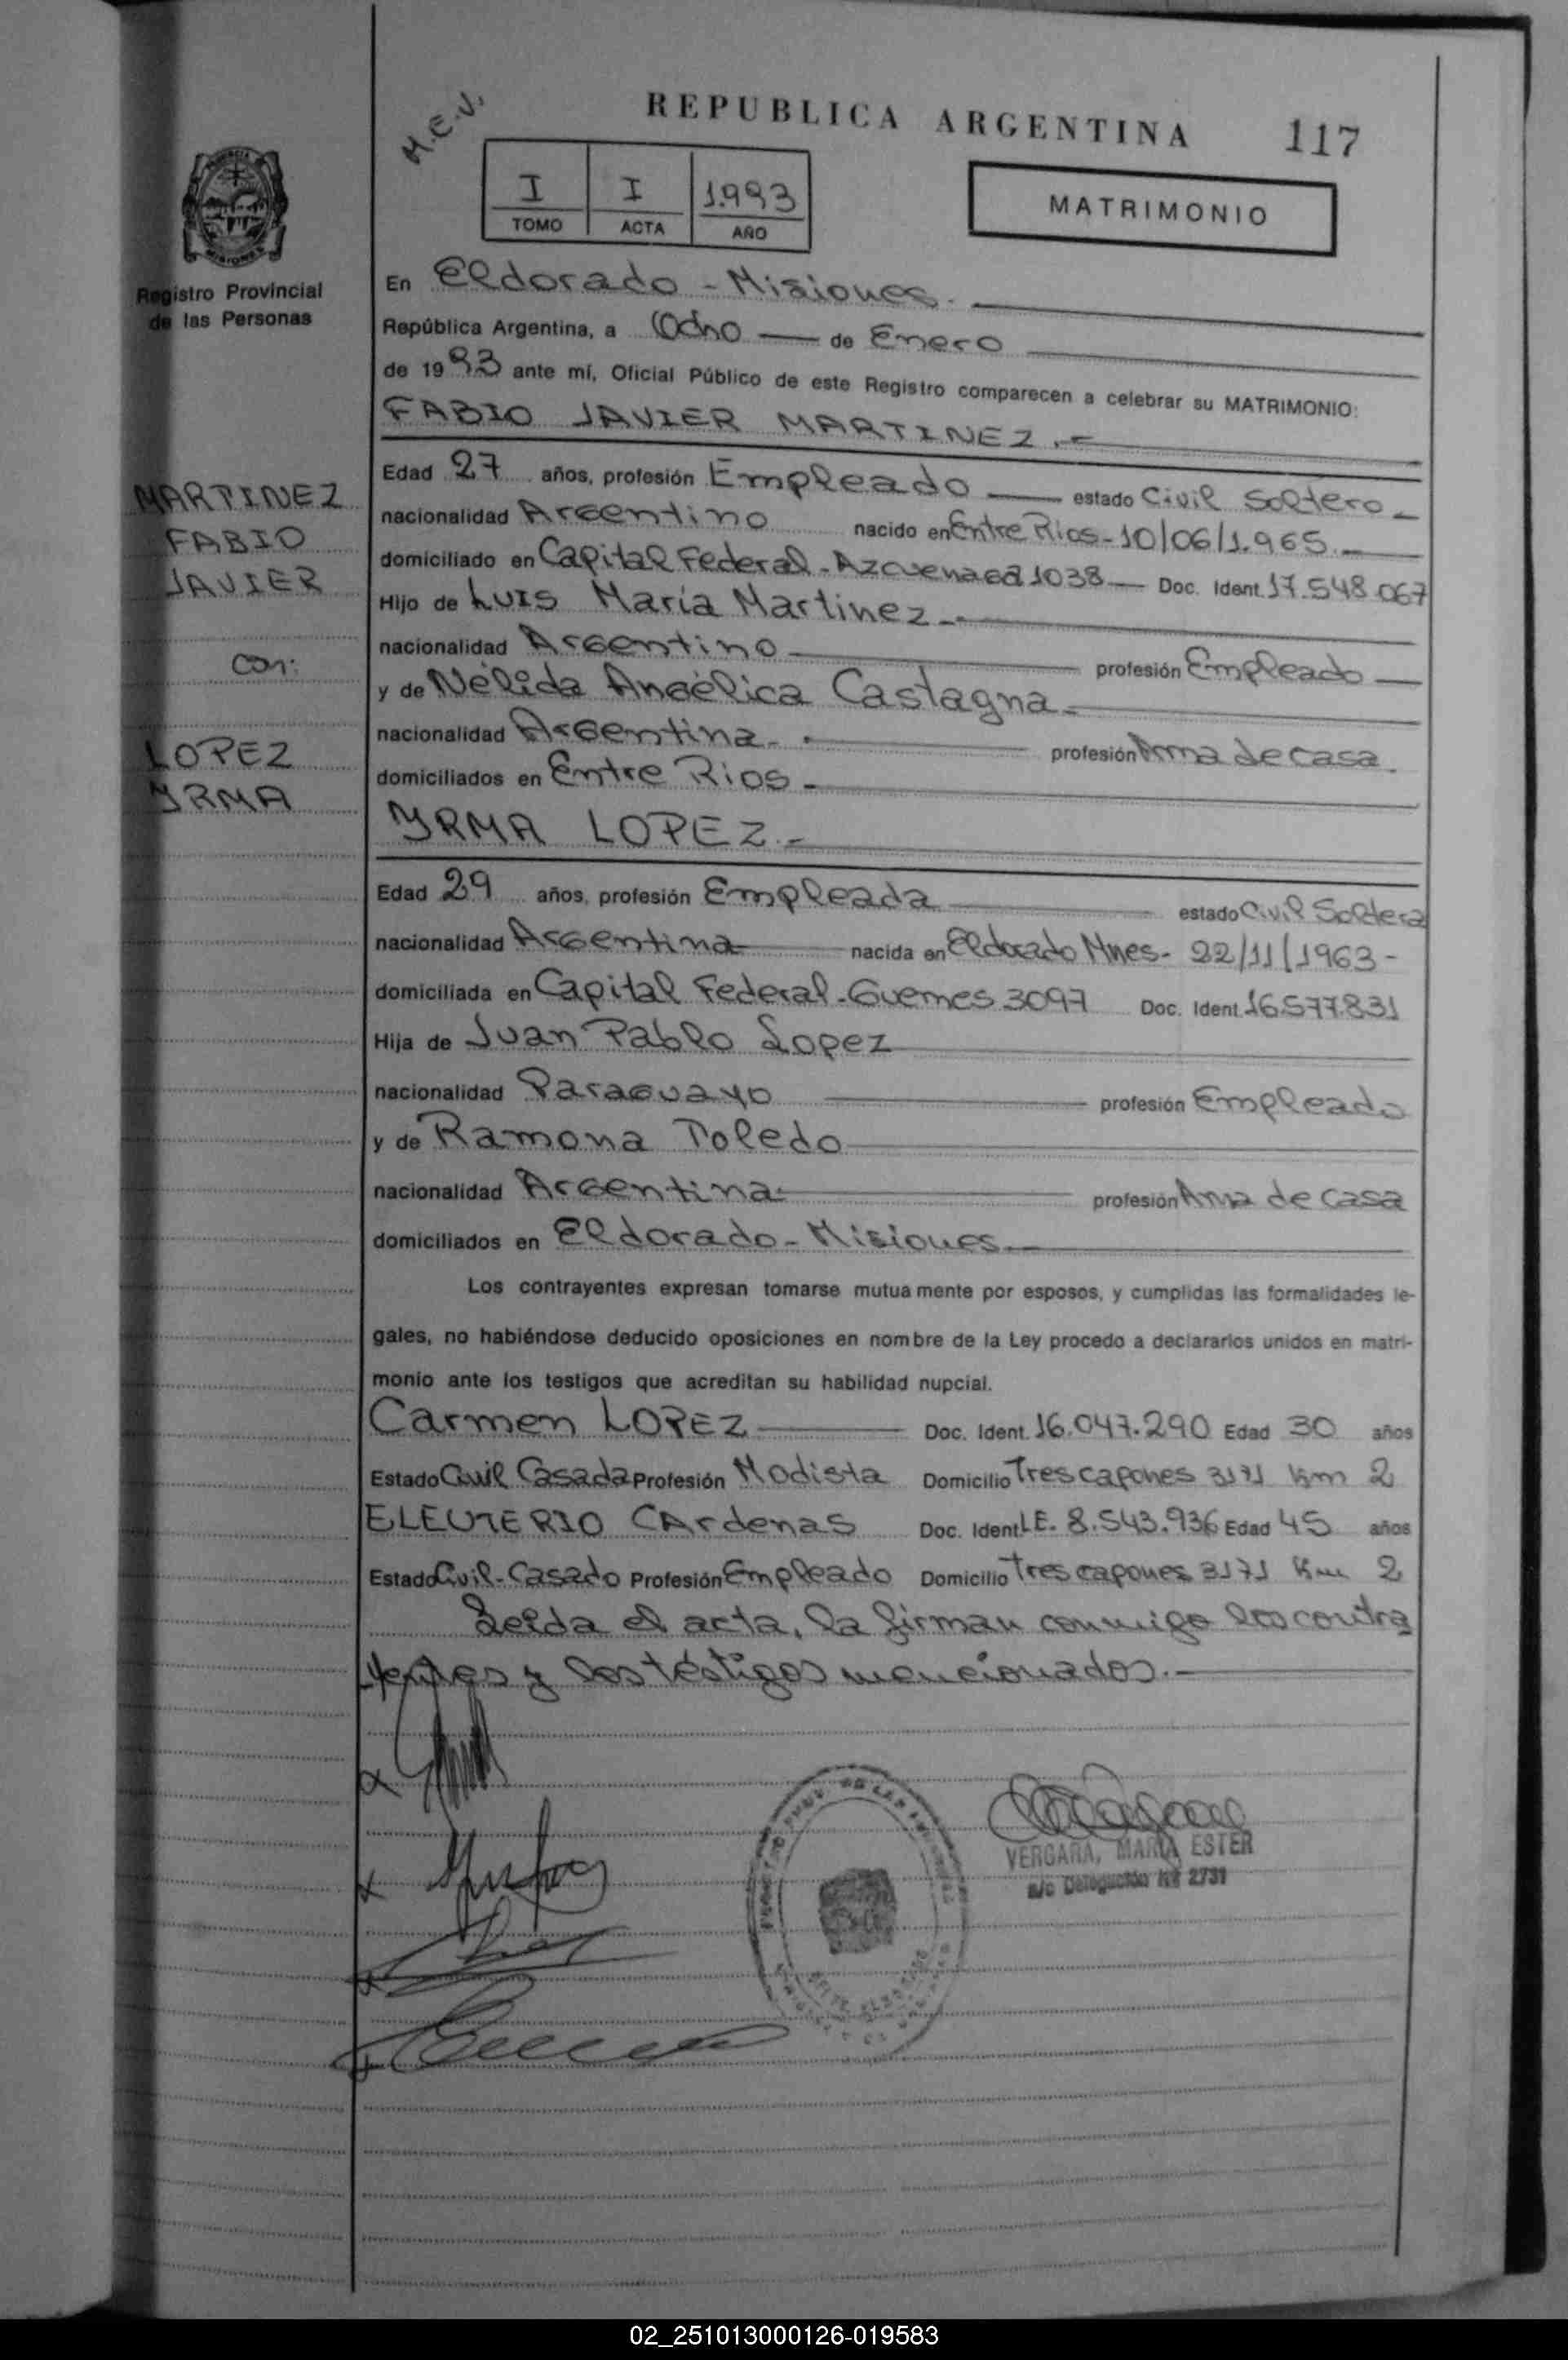 M.E.V.
REPUBLICA ARGENTINA 117
I I 1.993
TOMO ACTA AÑO
MATRIMONIO
MISIONES
Registro Provincial
de las Personas
En Eldorado - Misiones.
República Argentina, a Ocho de Enero
de 1993 ante mí, Oficial Público de este Registro comparecen a celebrar su MATRIMONIO:
FABIO JAVIER MARTINEZ.-
Edad 27 años, profesión Empleado estado Civil Soltero-
nacionalidad Argentino nacido en Entre Rios- 10/06/1.965.-
domiciliado en Capital Federal-Azcuenaga 1038- Doc. Ident. 17.548.067
Hijo de Luis María Martinez-.
nacionalidad Argentino profesión Empleado-
y de Nélida Angélica Castagna-
nacionalidad Argentina-. profesión Ama de casa.
domiciliados en Entre Rios-
MARTINEZ
FABIO
JAVIER
con:
LOPEZ
YRMA
YRMA LOPEZ.-
Edad 29 años, profesión Empleada estado Civil Soltera
nacionalidad Argentina nacida en Eldorado Mnes- 22/11/1963-
domiciliada en Capital Federal-Guemes 3097 Doc. Ident. 16.577.831
Hija de Juan Pablo Lopez
nacionalidad Paraguayo profesión Empleado
y de Ramona Toledo
nacionalidad Argentina profesión Ama de casa
domiciliados en Eldorado-Misiones.-
Los contrayentes expresan tomarse mutuamente por esposos, y cumplidas las formalidades le-
gales, no habiéndose deducido oposiciones en nombre de la Ley procedo a declararlos unidos en matri-
monio ante los testigos que acreditan su habilidad nupcial.
Carmen LOPEZ Doc. Ident. 16.047.290 Edad 30 años
Estado Civil Casada Profesión Modista Domicilio Tres capones 3171 Km 2
ELEUTERIO CArdenas Doc. Ident L.E. 8.543.936 Edad 45 años
Estado Civil-Casado Profesión Empleado Domicilio Tres capones 3171 Km 2
Leida el acta, la firman conmigo los contra
yentes y los téstigos mencionados.-
VERGARA, MARIA ESTER
a/c Delegación Nº 2731
02_251013000126-019583